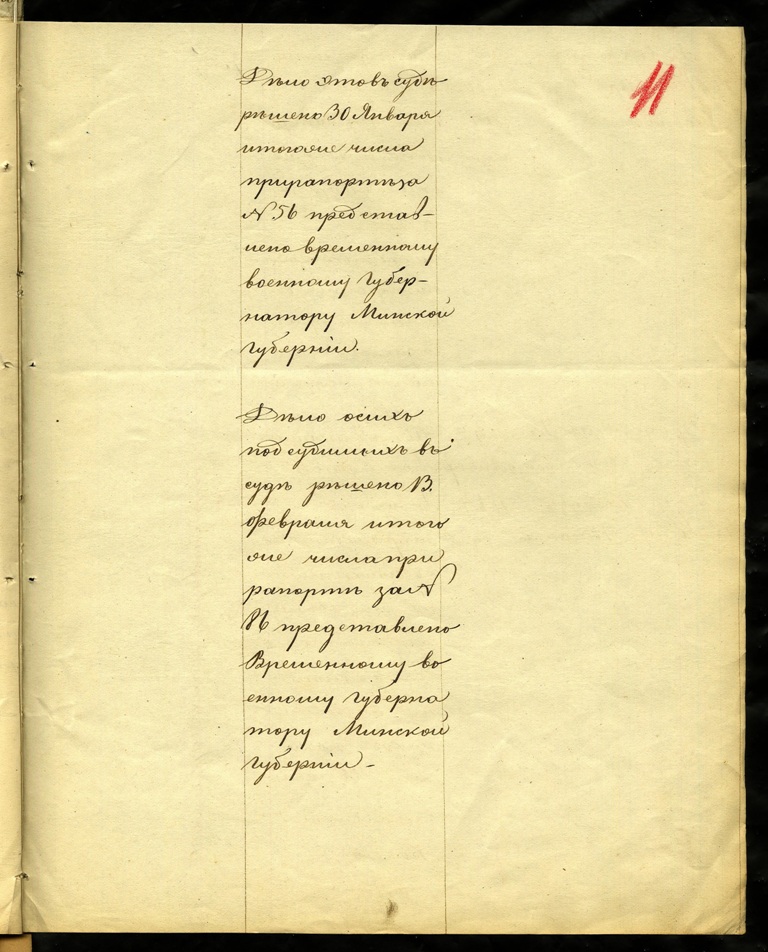 11
Дѣло этовъ судѣ
рѣшено 30 Января
итогоже числа
прирапортѣза
№ 56 представ-
лено временному
военному Губер-
натору Минской
Губерніи.
Дѣло осихъ
подсудимыхъ въ
судѣ рѣшено
февраля итого
же числапри
рапортѣ за №
представлено
Временному во
енному Губерна
тору Минской
Губерніи -